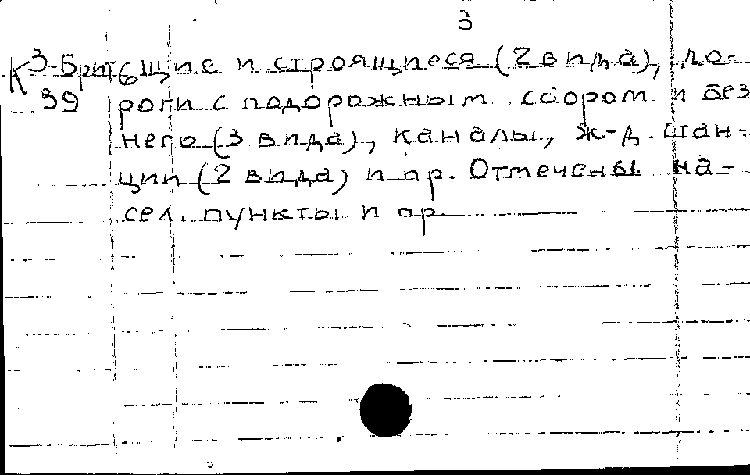 3
К 3-Брит. 6 щие и строящиеся (2 вида), до-
39 роги с подорожным сбором и без
него (3 вида), каналы, ж-д. стан-
ции (2 вида) и пр. Отмечены на-
сел. пункты и пр.